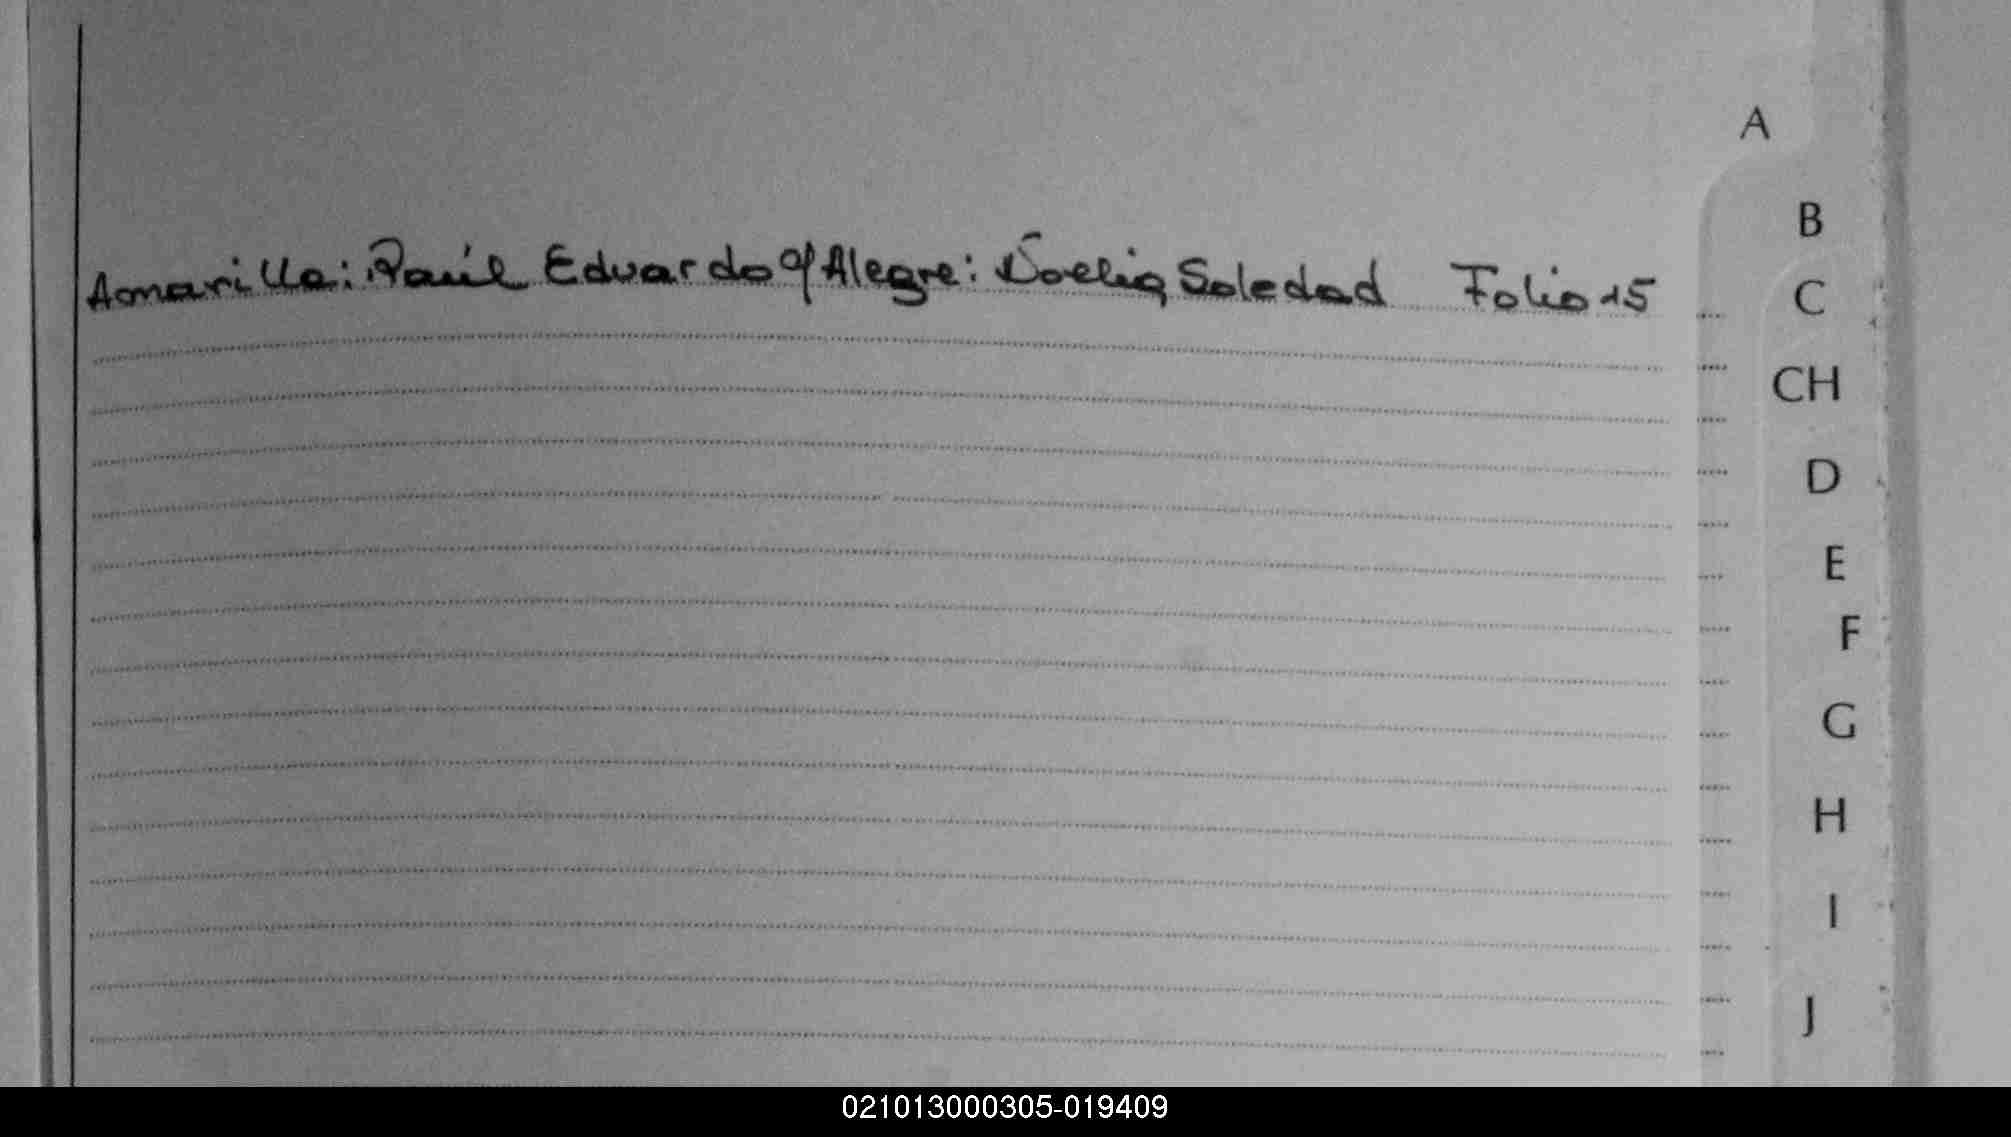 A
B
Amarilla: Raúl Eduardo c/ Alegre: Noelia Soledad Folio 15
C
CH
D
E
F
G
H
I
J
021013000305-019409